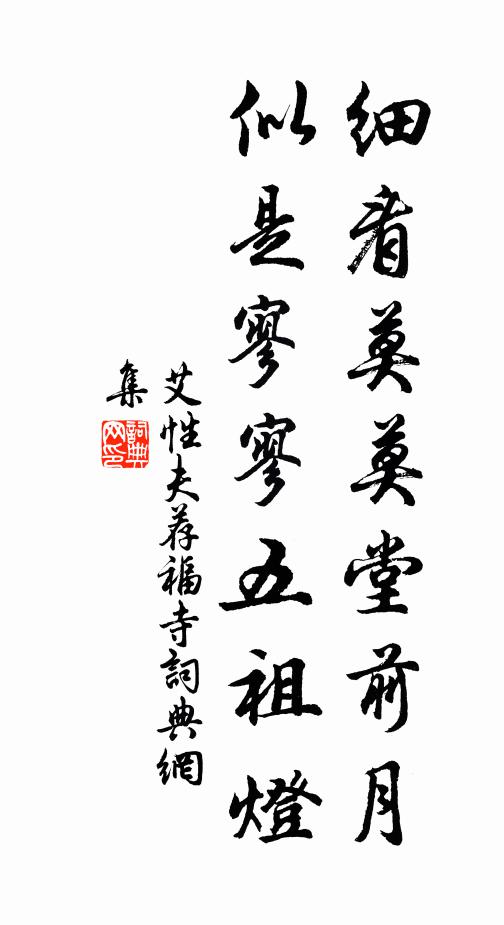 细看莫莫堂前月
似是寥寥五祖燈
艾性夫荐福寺詞典網
集
詞典
网印